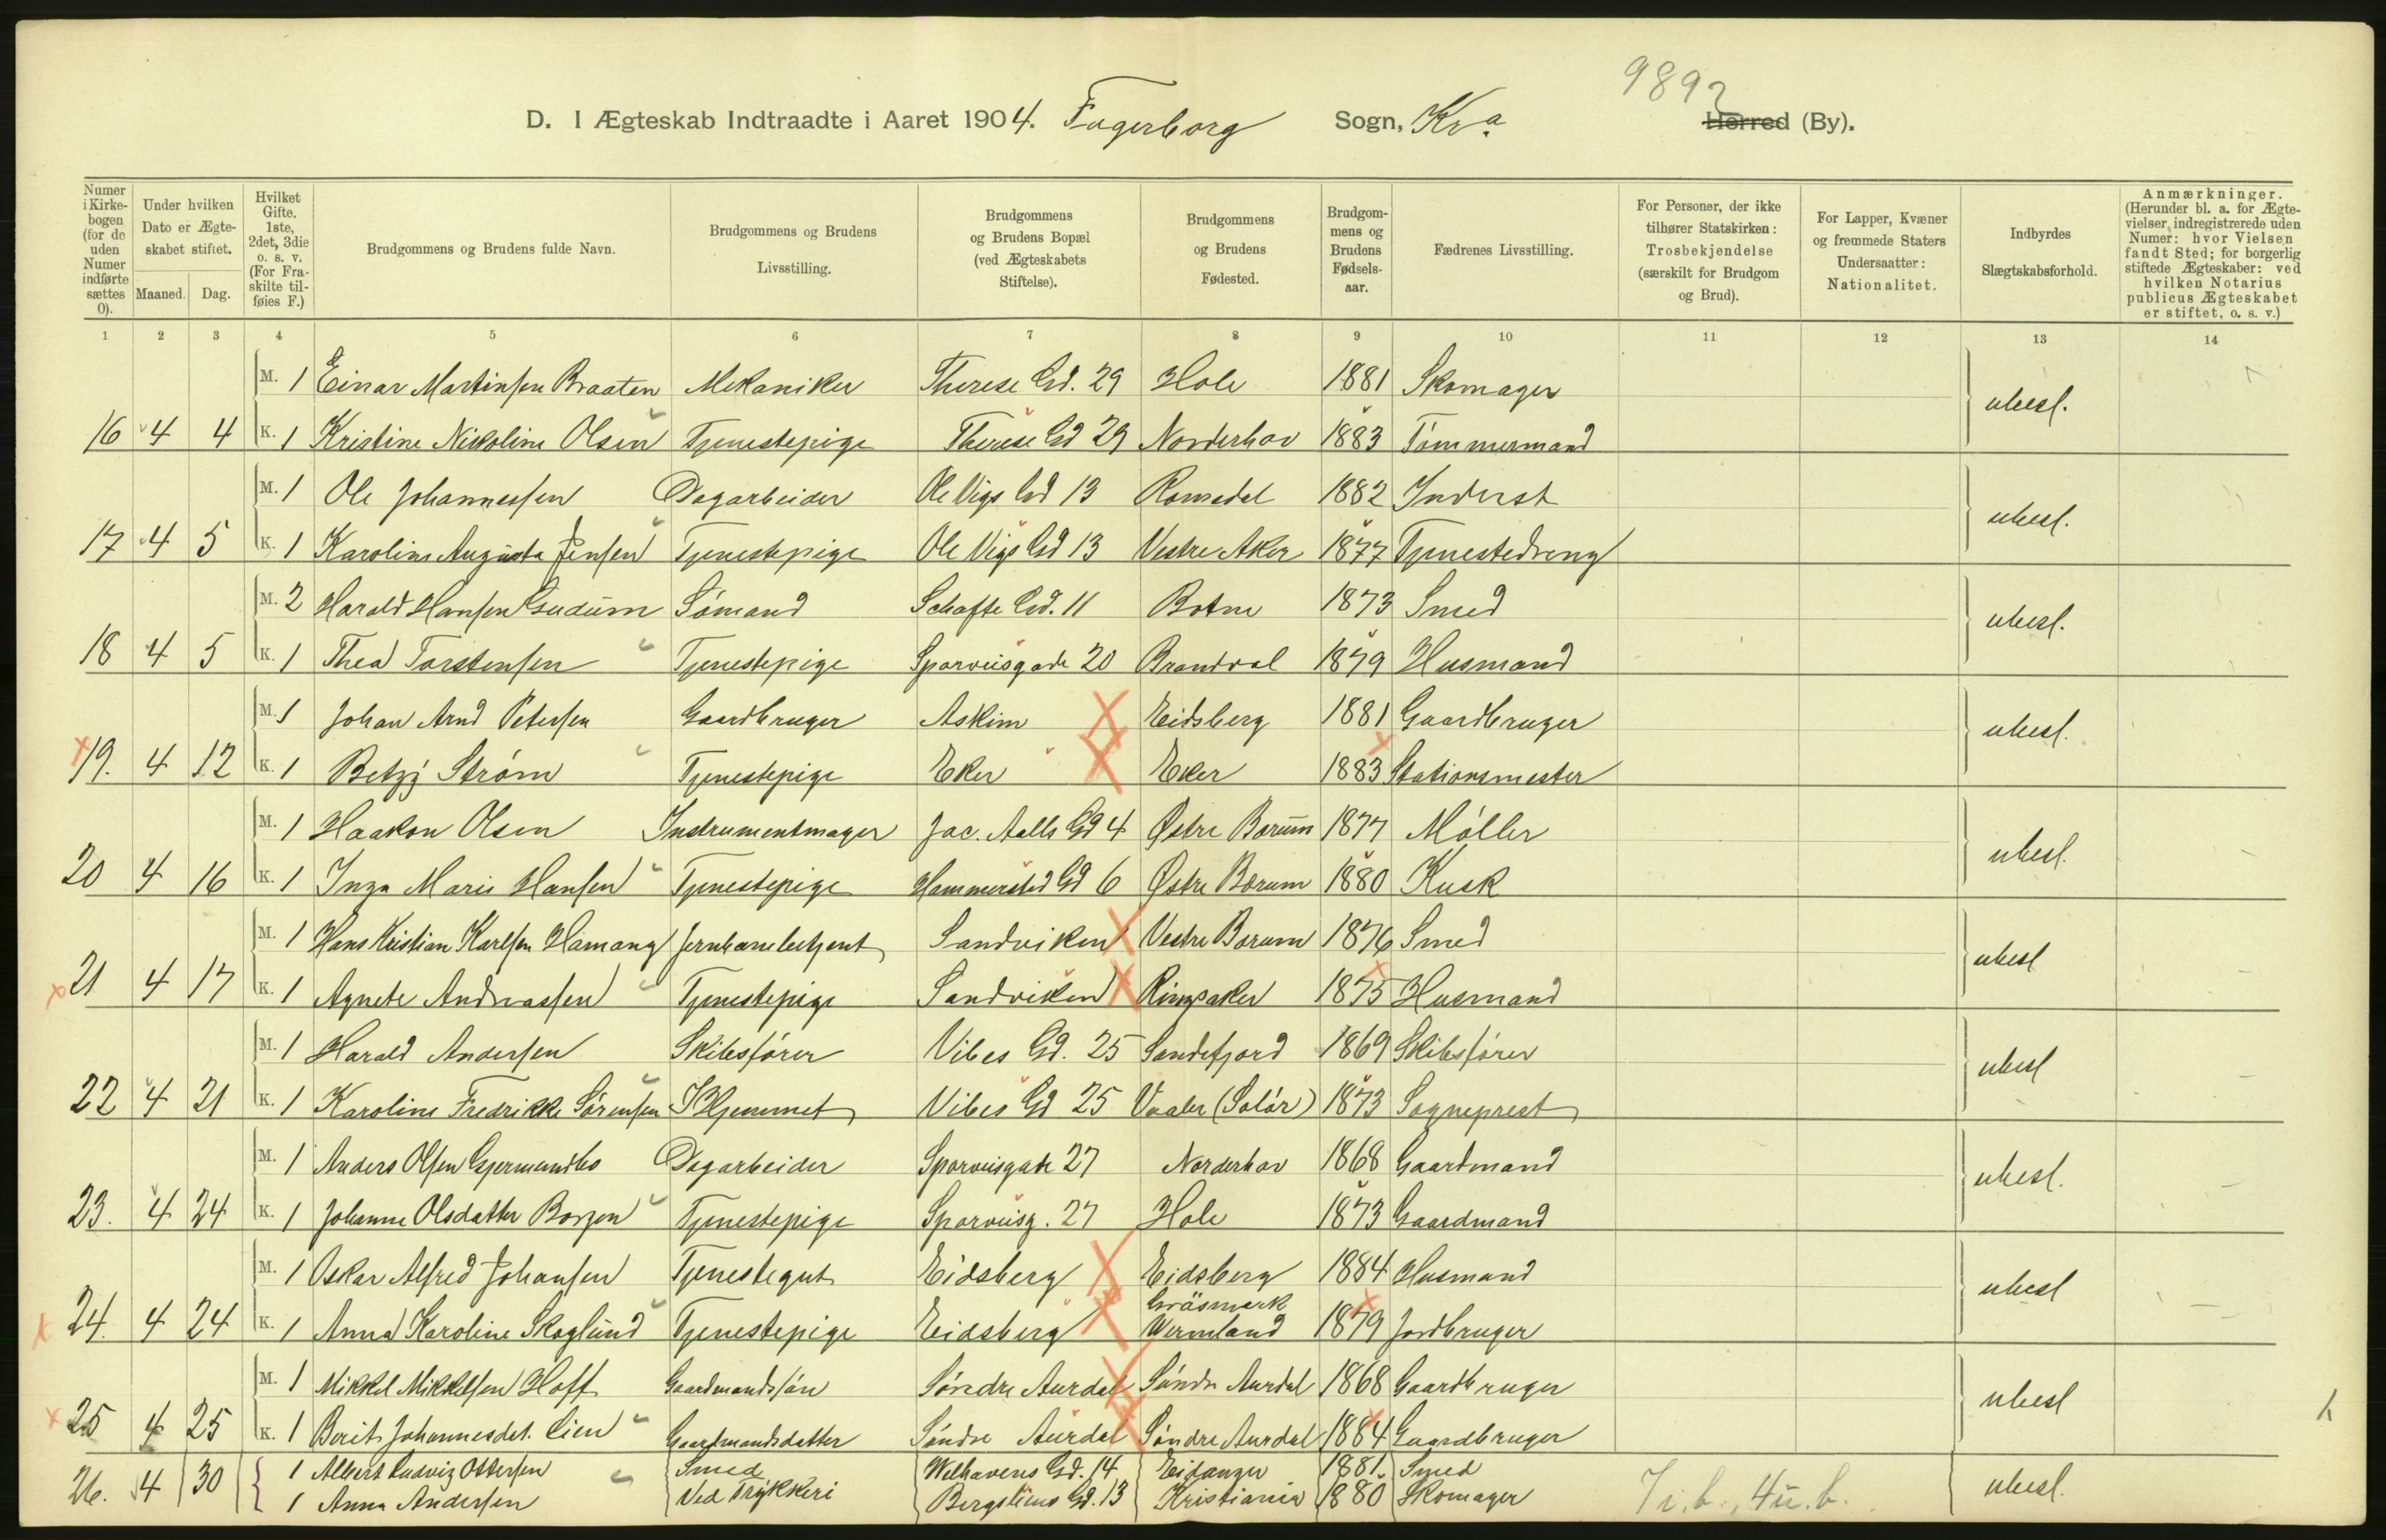 9892
D. I Ægteskab Indtraadte i Aaret 1904. Fagerborg Sogn, Kr.a Herred (By).
Numer i Kirkebogen (for de uden Numer indførte sættes 0).
Under hvilken Dato er Ægteskabet stiftet.
Maaned. Dag.
Hvilket Gifte. 1ste, 2det, 3die o. s. v. (For Fraskilte tilføies F.)
Brudgommens og Brudens fulde Navn.
Brudgommens og Brudens Livsstilling.
Brudgommens og Brudens Bopæl (ved Ægteskabets Stiftelse).
Brudgommens og Brudens Fødested.
Brudgommens og Brudens Fødselsaar.
Fædrenes Livsstilling.
For Personer, der ikke tilhører Statskirken: Trosbekjendelse (særskilt for Brudgom og Brud).
For Lapper, Kvæner og fremmede Staters Undersaatter: Nationalitet.
Indbyrdes Slægtskabsforhold.
Anmærkninger. (Herunder bl. a. for Ægtevielser, indregistrerede uden Numer: hvor Vielsen fandt Sted; for borgerlig stiftede Ægteskaber: ved hvilken Notarius publicus Ægteskabet er stiftet, o. s. v.)
1 2 3 4 5 6 7 8 9 10 11 12 13 14
M. 1 Einar Martinsen Braaten Mekaniker Therese Gd. 29 Hole 1881 Skomager
16 4 4 K. 1 Kristine Nikoline Olsen Tjenestepige Therese Gd 29 Norderhov 1883 Tømmermand ubesl.
M. 1 Ole Johannessen Dagarbeider Ole Vigs Gd 13 Romedal 1882 Inderst
17 4 5 K. 1 Karoline Augusta Jensen Tjenestepige Ole Vigs Gd 13 Vestre Aker 1877 Tjenestedreng ubesl.
M. 2 Harald Hansen Gudum Sømand Schafts Gd. 11 Botne 1873 Smed
18 4 5 K. 1 Thea Torstensen Tjenestepige Sporveisgade 20 Brandval 1879 Husmand ubesl.
M. 1 Johan Arnd Petersen Gaardbruger Askim Eidsberg 1881 Gaardbruger
19. 4 12 K. 1 Betzy Strøm Tjenestepige Eker Eker 1883 Stationsmester ubesl.
M. 1 Haakon Olsen Instrumentmager Jac. Aalls Gd 4 Østre Bærum 1877 Møller
20 4 16 K. 1 Inga Marie Hansen Tjenestepige Hammersted Gd 6 Østre Bærum 1880 Kusk ubesl.
M. 1 Hans Kristian Karlsen Hamang Jernbanebetjent Sandviken Vestre Bærum 1876 Smed
21 4 17 K. 1 Agnete Andreassen Tjenestepige Sandviken Ringsaker 1875 Husmand ubesl
M. 1 Harald Andersen Skibsfører Vibes Gd. 25 Sandefjord 1869 Skibsfører
22 4 21 K. 1 Karoline Fredrikke Sørensen I Hjemmet Vibes Gd 25 Vaaler (Solør) 1873 Sogneprest ubesl
M. 1 Anders Olsen Gjermundbo Dagarbeider Sporveisgade 27 Norderhov 1868 Gaardmand
23. 4 24 K. 1 Johanne Olsdatter Borgen Tjenestepige Sporveisg. 27 Hole 1873 Gaardmand ubesl.
M. 1 Oskar Alfred Johansen Tjenestegut Eidsberg Eidsberg 1884 Husmand
24. 4 24 K. 1 Anna Karoline Skoglund Tjenestepige Eidsberg Gräsmark Wermland 1879 Jordbruger ubesl
M. 1 Mikkel Mikkelsen Hoff Gaardmandssøn Søndre Aurdal Søndre Aurdal 1868 Gaardbruger
25 4 25 K. 1 Berit Johannesdat. Lien Gaardmandsdatter Søndre Aurdal Søndre Aurdal 1884 Gaardbruger ubesl
1 Albert Ludvig Ottersen Smed Welhavens Gd. 14 Eidanger 1881 Smed
26. 4 30 1 Anna Andersen Ved Trykkeri Bergsliens Gd. 13 Kristiania 1880 Skomager ubesl.
7 i. b., 4 u. b.